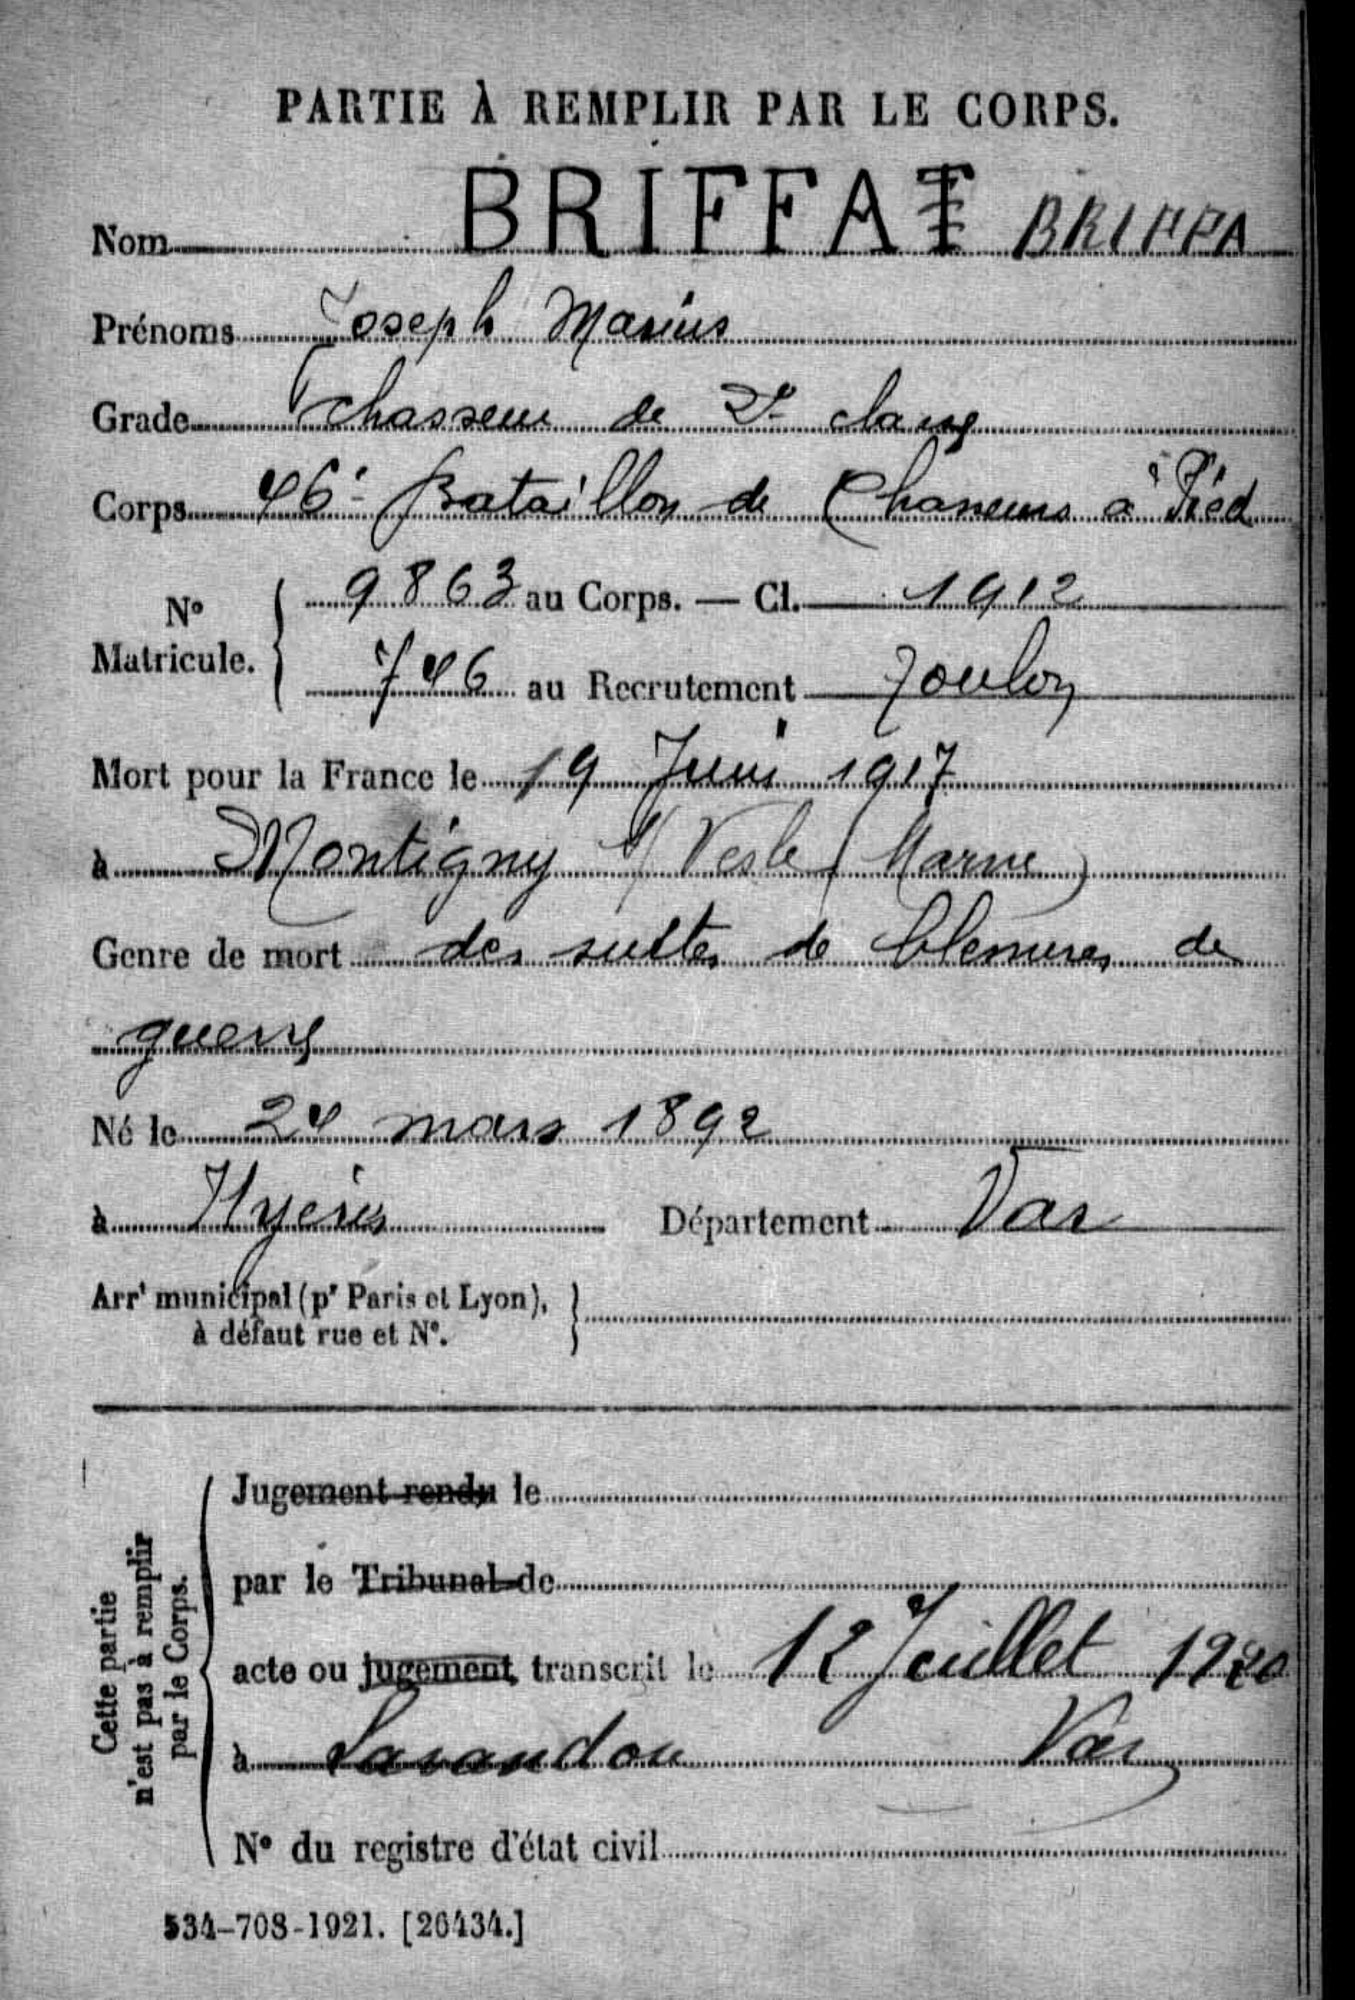 PARTIE À REMPLIR PAR LE CORPS.
Nom BRIFFAT BRIFFA
Prénoms Joseph Marius
Grade Chasseur de 2e classe
Corps 46e Bataillon de Chasseurs à Pied
No Matricule. { 9863 au Corps. — Cl. 1912
746 au Recrutement Toulon
Mort pour la France le 19 Juin 1917
à Montigny s/ Vesle (Marne)
Genre de mort des suites de blessures de
guerre
Né le 24 mars 1892
à Hyères Département Var
Arrt municipal (pr Paris et Lyon),
à défaut rue et No.
Cette partie
n'est pas à remplir
par le Corps.
Jugement rendu le
par le Tribunal de
acte ou jugement transcrit le 12 Juillet 1920
à Lavandou Var
No du registre d'état civil
534-708-1921. [26434.]